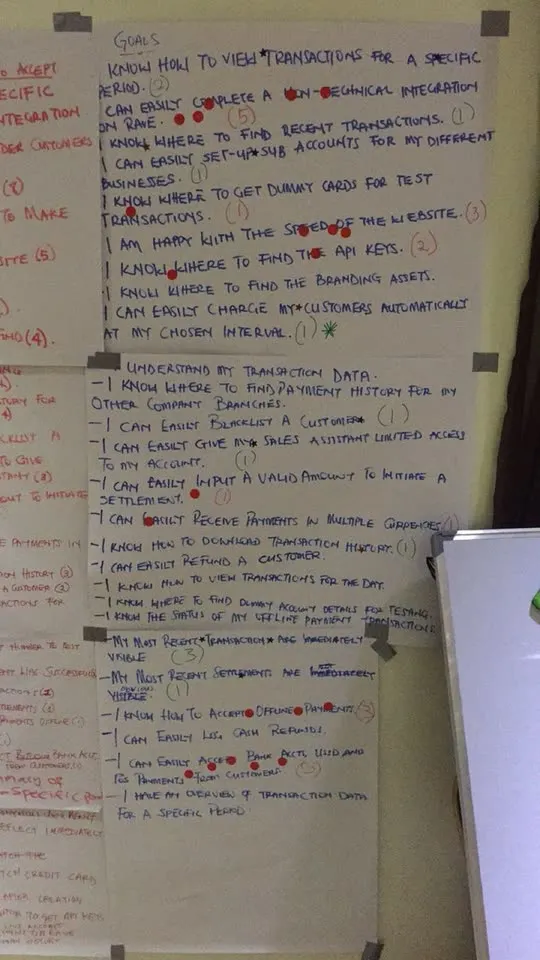 GOALS
I KNOW HOW TO VIEW TRANSACTIONS FOR A SPECIFIC
PERIOD. (2)
I CAN EASILY COMPLETE A NON-TECHNICAL INTEGRATION
ON RAVE. (5)
I KNOW WHERE TO FIND RECENT TRANSACTIONS. (1)
I CAN EASILY SET-UP SUB ACCOUNTS FOR MY DIFFERENT
BUSINESSES. (1)
I KNOW WHERE TO GET DUMMY CARDS FOR TEST
TRANSACTIONS. (1)
I AM HAPPY WITH THE SPEED OF THE WEBSITE. (3)
I KNOW WHERE TO FIND THE API KEYS. (2)
I KNOW WHERE TO FIND THE BRANDING ASSETS.
I CAN EASILY CHARGE MY CUSTOMERS AUTOMATICALLY
AT MY CHOSEN INTERVAL. (1) *
I UNDERSTAND MY TRANSACTION DATA.
- I KNOW WHERE TO FIND PAYMENT HISTORY FOR MY
OTHER COMPANY BRANCHES.
- I CAN EASILY BLACKLIST A CUSTOMER (1)
- I CAN EASILY GIVE MY SALES ASSISTANT LIMITED ACCESS
TO MY ACCOUNT. (1)
- I CAN EASILY INPUT A VALID AMOUNT TO INITIATE A
SETTLEMENT. (1)
- I CAN EASILY RECEIVE PAYMENTS IN MULTIPLE CURRENCIES (1)
- I KNOW HOW TO DOWNLOAD TRANSACTION HISTORY. (1)
- I CAN EASILY REFUND A CUSTOMER.
- I KNOW HOW TO VIEW TRANSACTIONS FOR THE DAY.
- I KNOW WHERE TO FIND DUMMY ACCOUNT DETAILS FOR TESTING.
- I KNOW THE STATUS OF MY OFFLINE PAYMENT TRANSACTIONS
- MY MOST RECENT TRANSACTION ARE IMMEDIATELY
VISIBLE (3)
- MY MOST RECENT SETTLEMENTS ARE IMMEDIATELY
VISIBLE. (1)
- I KNOW HOW TO ACCEPT OFFLINE PAYMENTS (3)
- I CAN EASILY CASH REFUNDS.
- I CAN EASILY ACCEPT BANK ACCT. USSD AND
PAYMENTS FROM CUSTOMERS
- I HAVE AN OVERVIEW OF TRANSACTION DATA
FOR A SPECIFIC PERIOD
TO ACCEPT
SPECIFIC
INTEGRATION
CUSTOMERS
(8)
TO MAKE
SITE (5)
FIND (4).
STORY FOR
TO GIVE
OUT TO INITIATE
PAYMENTS IN
HISTORY (3)
A CUSTOMER (3)
FOR
NUMBER TO TEST
WAS SUCCESSFUL
OFFLINE
BANK ACCT
FROM CUSTOMERS
OF
SPECIFIC
REFLECT IMMEDIATELY
CREDIT CARD
AFTER CREATING
TO GET API KEYS